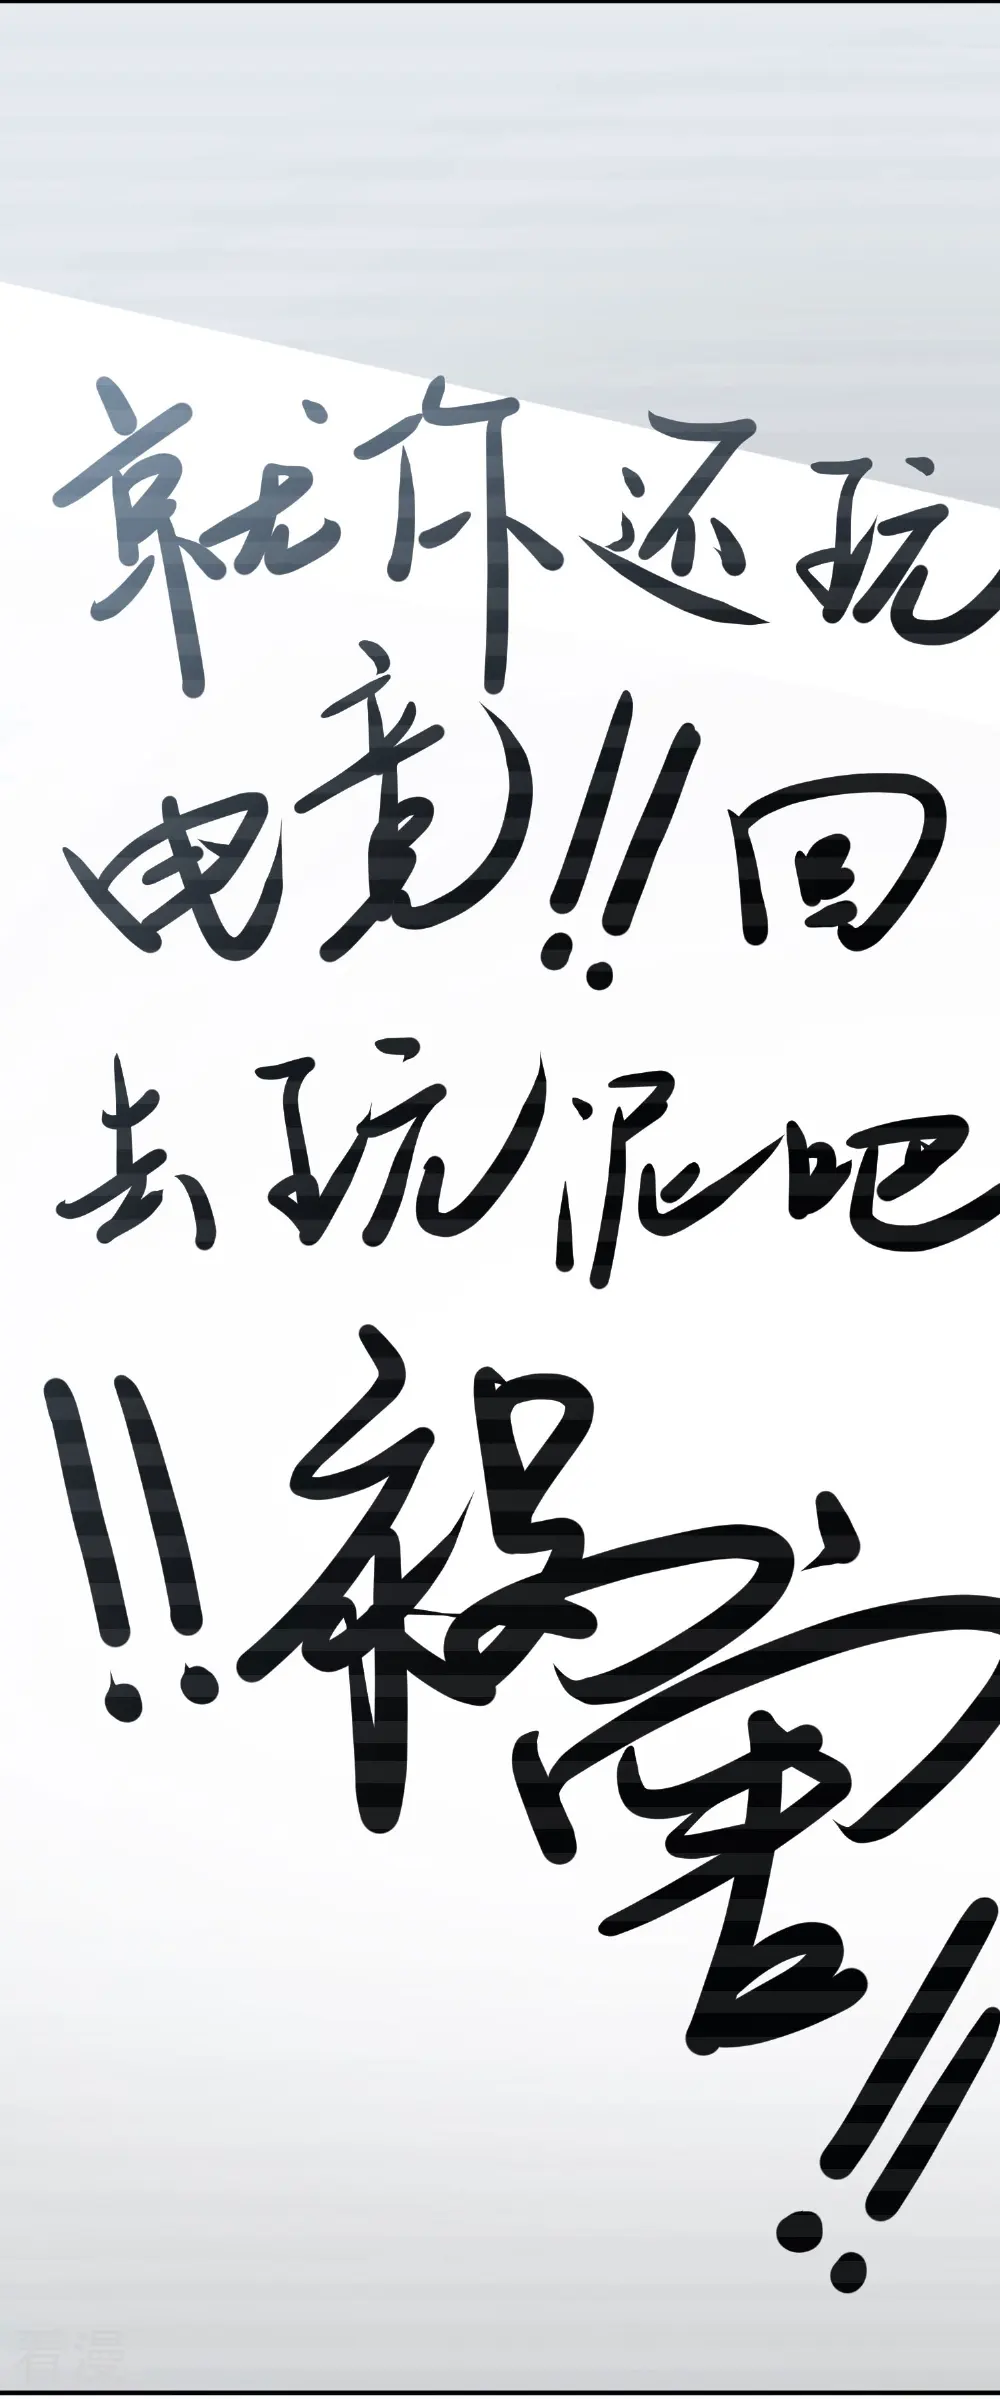 就你还玩
电竞!!回
去玩泥吧
!!祸害!!
看漫